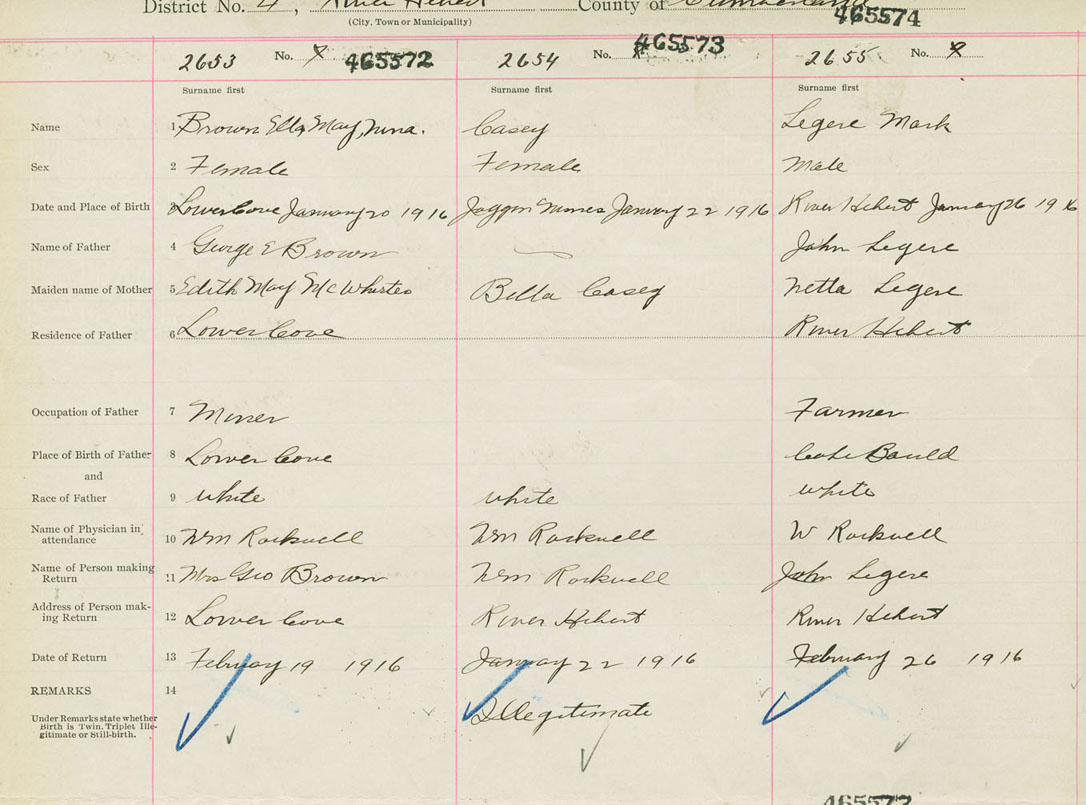 District No. 4, River Hebert County of Cumberland
(City, Town or Municipality)
465574
2653 No. X 465572 2654 No. 465573 2655 No. X
Surname first Surname first Surname first
Name 1 Brown Ella May Nina. Casey Legere Mark
Sex 2 Female Female Male
Date and Place of Birth 3 Lower Cove January 20 1916 Joggin Mines January 22 1916 River Hebert January 26 1916
Name of Father 4 George E Brown John Legere
Maiden name of Mother 5 Edith May McWhirter Bella Casey Netta Legere
Residence of Father 6 Lower Cove River Hebert
Occupation of Father 7 Miner Farmer
Place of Birth of Father 8 Lower Cove Bauld
and
Race of Father 9 white white white
Name of Physician in
attendance 10 Wm Rockwell Wm Rockwell W Rockwell
Name of Person making
Return 11 Mrs Geo Brown Wm Rockwell John Legere
Address of Person mak-
ing Return 12 Lower Cove River Hebert River Hebert
Date of Return 13 February 19 1916 January 22 1916 February 26 1916
REMARKS 14
Illegitimate
Under Remarks state whether
Birth is Twin, Triplet Ille-
gitimate or Still-birth.